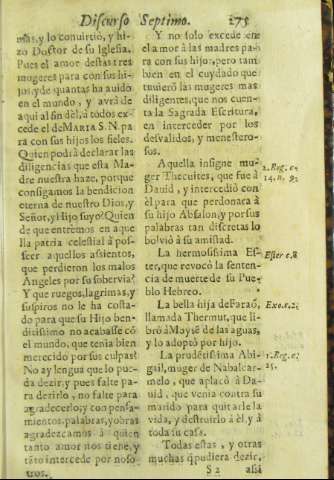 Discurso Septimo. 275
mas, y lo conuirtiò, y hi-
zo Doctor de su Iglesia.
Pues el amor destas tres
mugeres para con sus hi-
jos, y de quantas ha auido
en el mundo, y avrà de
aqui al fin dèl, à todos ex-
cede el de MARIA S. N. pa
ra con sus hijos los fieles.
Quien podrà declarar las
diligencias que esta Ma-
dre nuestra haze, porque
consigamos la bendicion
eterna de nuestro Dios, y
Señor, y Hijo suyo? Quien
de que entremos en aque
lla patria celestial à pos-
seer aquellos assientos,
que perdieron los malos
Angeles por su sobervia?
Y que ruegos, lagrimas, y
suspiros no le ha costa-
do para que su Hijo ben-
ditissimo no acabasse cõ
el mundo, que tenia bien
merecido por sus culpas?
No ay lengua que lo pue-
da dezir, y pues falte pa-
ra dezirlo, no falte para
agradecerlo; y con pensa-
mientos, palabras, y obras
agradezcamos à quien
tanto amor nos tiene, y
tãto intercede por noso-
tros.
Y no solo excede en
el amor à las madres pa-
ra con sus hijos, pero tam
bien en el cuydado que
tuuierõ las mugeres mas
diligentes, que nos cuen-
ta la Sagrada Escritura,
en interceder por los
desvalidos, y menestero-
sos.
Aquella insigne mu-
ger Thecuites, que fue à
Dauid, y intercediò con
èl para que perdonara à
su hijo Absalon, y por sus
palabras tan discretas lo
bolviò à su amistad.
2. Reg. c.
14. n. 9.
La hermosissima Es-
ter, que revocò la senten-
cia de muerte de su Pue-
blo Hebreo.
Ester c. 8
La bella hija de Faraõ,
llamada Thermut, que li-
brò à Moysè de las aguas,
y lo adoptò por hijo.
Exo. c. 2.
La prudẽtissima Abi-
gail, muger de Nabalcar-
melo, que aplacò à Da-
uid, que venia contra su
marido para quitarle la
vida, y destruirlo à èl, y à
toda su casa.
1. Reg. c.
25.
Todas estas, y otras
muchas q̃ pudiera dezir,
S 2 assi